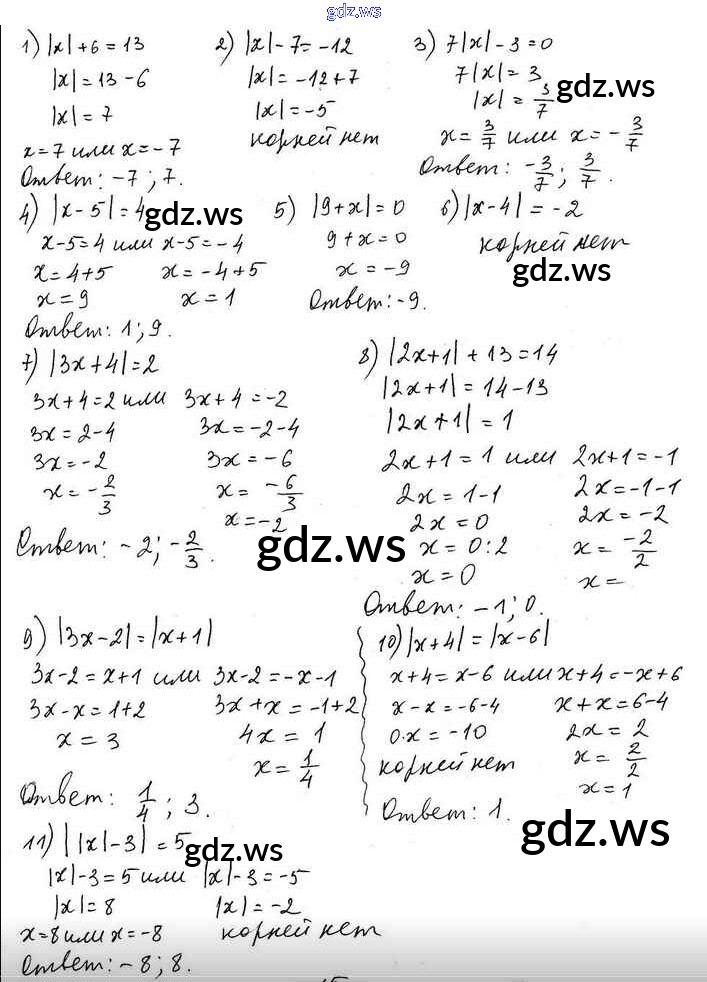 gdz.ws
1) |x|+6=13
|x|=13-6
|x|=7
x=7 или x=-7
Ответ: -7; 7.
2) |x|-7=-12
|x|=-12+7
|x|=-5
корней нет
3) 7|x|-3=0
7|x|=3
|x|=3/7
gdz.ws
x=3/7 или x=-3/7
Ответ: -3/7; 3/7.
4) |x-5|=4
gdz.ws
x-5=4 или x-5=-4
x=4+5 x=-4+5
x=9 x=1
Ответ: 1; 9.
5) |9+x|=0
9+x=0
x=-9
Ответ: -9.
6) |x-4|=-2
корней нет
gdz.ws
7) |3x+4|=2
3x+4=2 или 3x+4=-2
3x=2-4 3x=-2-4
3x=-2 3x=-6
x=-2/3 x=-6/3
x=-2
Ответ: -2; -2/3.
gdz.ws
8) |2x+1|+13=14
|2x+1|=14-13
|2x+1|=1
2x+1=1 или 2x+1=-1
2x=1-1 2x=-1-1
2x=0 2x=-2
x=0:2 x=-2/2
x=0 x=
Ответ: -1; 0.
9) |3x-2|=|x+1|
3x-2=x+1 или 3x-2=-x-1
3x-x=1+2 3x+x=-1+2
x=3 4x=1
x=1/4
Ответ: 1/4; 3.
10) |x+4|=|x-6|
x+4=x-6 или x+4=-x+6
x-x=-6-4 x+x=6-4
0·x=-10 2x=2
корней нет x=2/2
x=1
Ответ: 1.
gdz.ws
11) ||x|-3|=5
gdz.ws
|x|-3=5 или |x|-3=-5
|x|=8 |x|=-2
x=8 или x=-8 корней нет
Ответ: -8; 8.